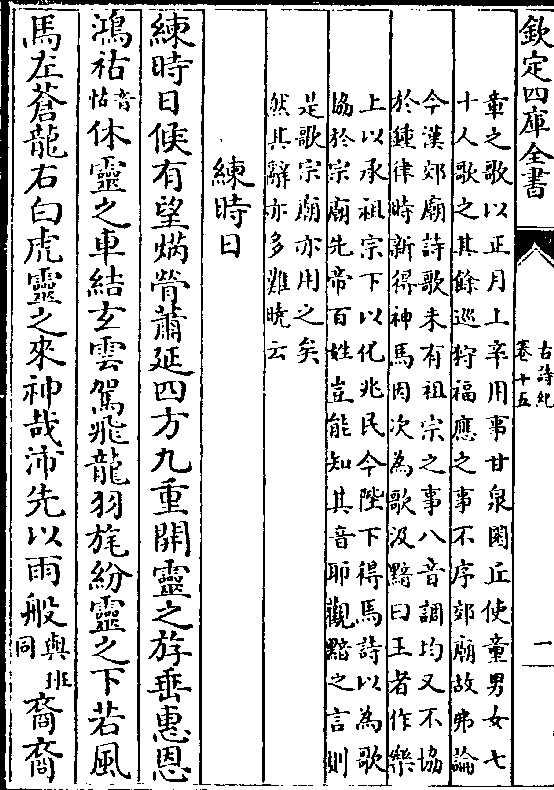 欽定四庫全書
古詩紀
卷十五
一
章之歌以正月上辛用事甘泉圜丘使童男女七
十人歌之其餘巡狩福應之事不序郊廟故弗論
今漢郊廟詩歌未有祖宗之事八音調均又不協
於鍾律時新得神馬因次為歌汲黯曰王者作樂
上以承祖宗下以化兆民今陛下得馬詩以為歌
協於宗廟先帝百姓豈能知其音耶觀黯之言則
是歌宗廟亦用之矣
然其辭亦多難曉云
練時日
練時日候有望焫膋蕭延四方九重開靈之斿垂惠恩
鴻祜音怙休靈之車結玄雲駕飛龍羽旄紛靈之下若風
馬左蒼龍右白虎靈之來神哉沛先以雨般與班同裔裔